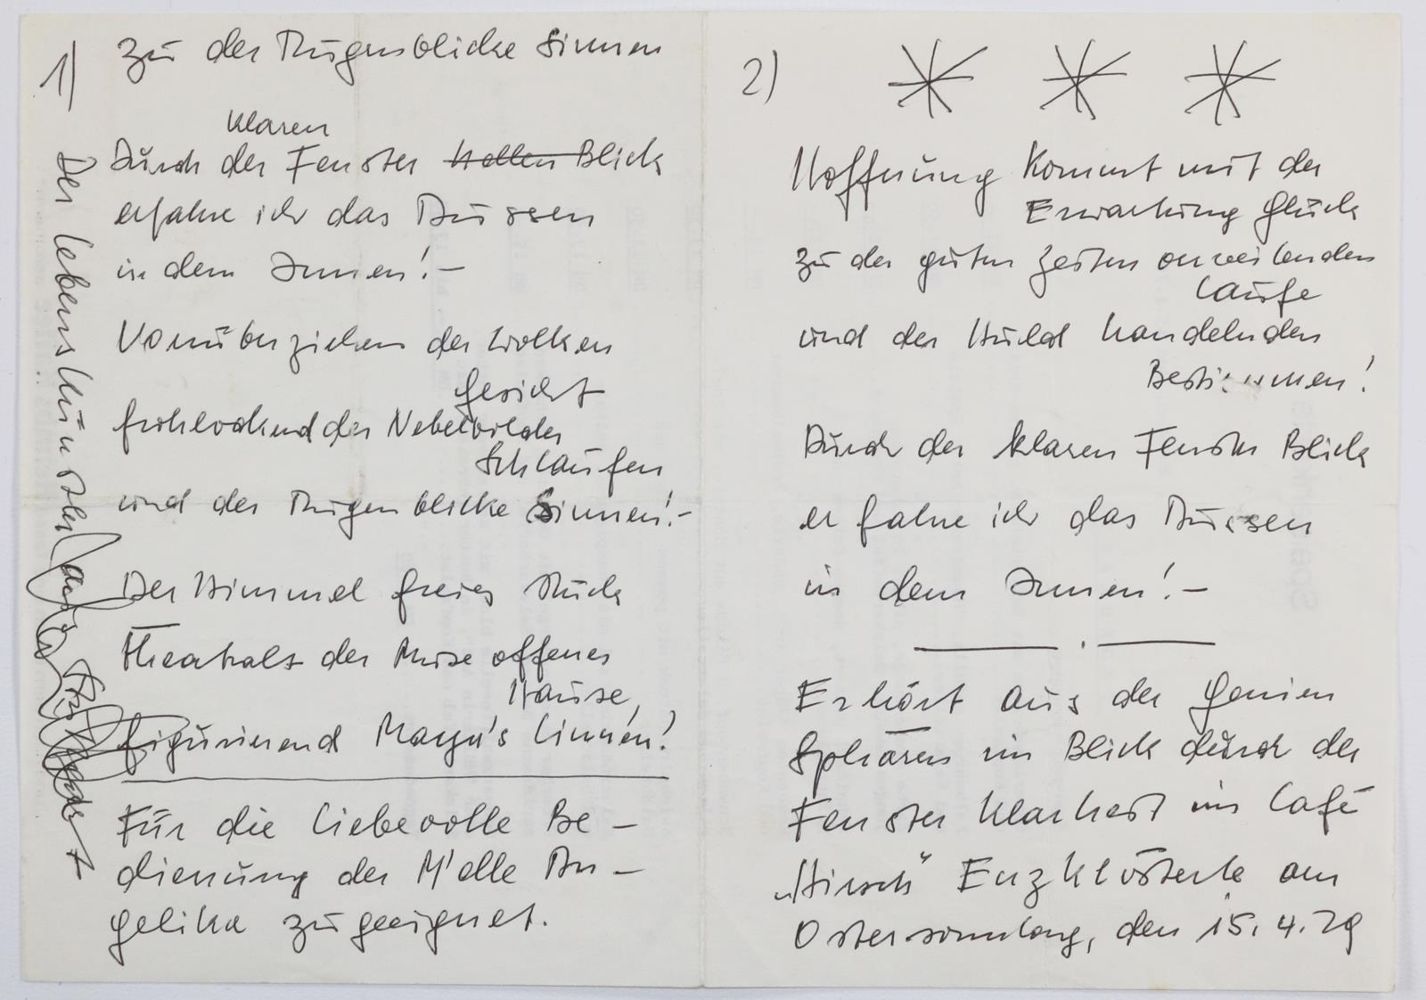 1)
Zu der Augenblicke Sinnen
klaren
Durch der Fenster hellen Blick
erfahre ich das Aussen
in dem Innen! –
Vorrüberziehen der Wolken
Gesicht
frohlockend der Nebelbilder
Schlaufen
und der Augenblicke Sinnen! –
Der Himmel freies Stück
Theatralt der Muse offenes
Hause,
figurierend Maya's Linnen!
Für die liebevolle Be –
dienung der M'elle An –
gelika zugeeignet.
Der Lebenskünstler
2)
Hoffnung kommt mit der
Erwartung Glück
zu der guten Zeiten
Laufe
und der Huld handelnden
Bestimmen!
Durch der klaren Fenster Blick
erfahre ich das Aussen
in dem Innen! –
Erhört aus der Genien
Sphären im Blick durch der
Fenster Klarheit im Café
„Hirsch" Enzklösterle am
Ostersonntag, den 15. 4. 79